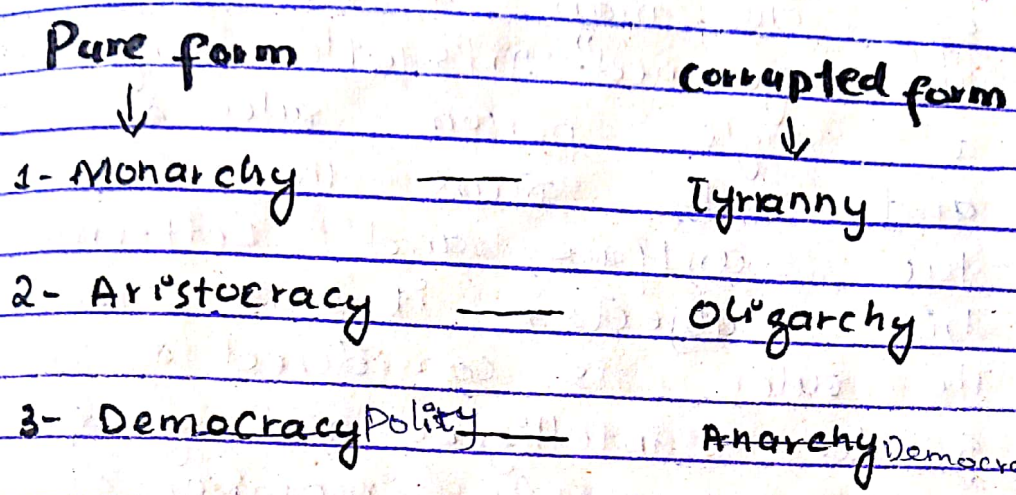 Pure form
corrupted form
↓ ↓
1- Monarchy — Tyranny
2- Aristocracy — Oligarchy
3- Democracy Polity — Anarchy Democra